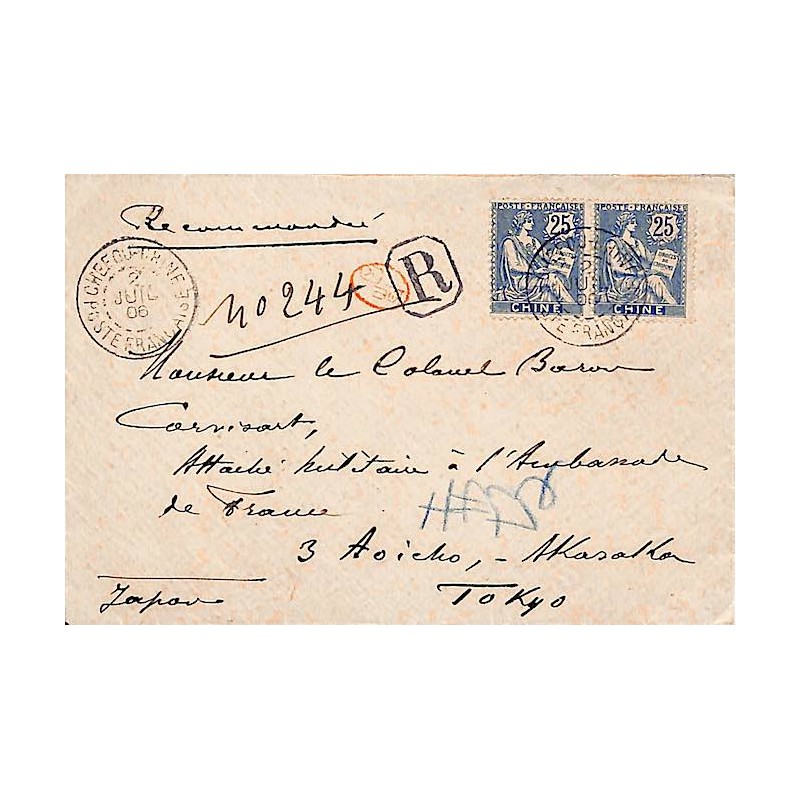 POSTE FRANÇAISE POSTE FRANÇAISE
25 25
DROITS DE
CHINE CHINE
Recommandé
CHEFOU-CHINE
2
JUIL
06
POSTE FRANÇAISE
No 244
R
Monsieur le Colonel Baron
Corvisart,
Attaché militaire à l'Ambassade
de France
3 Aoicho, - Akasaka
Japon Tokyo